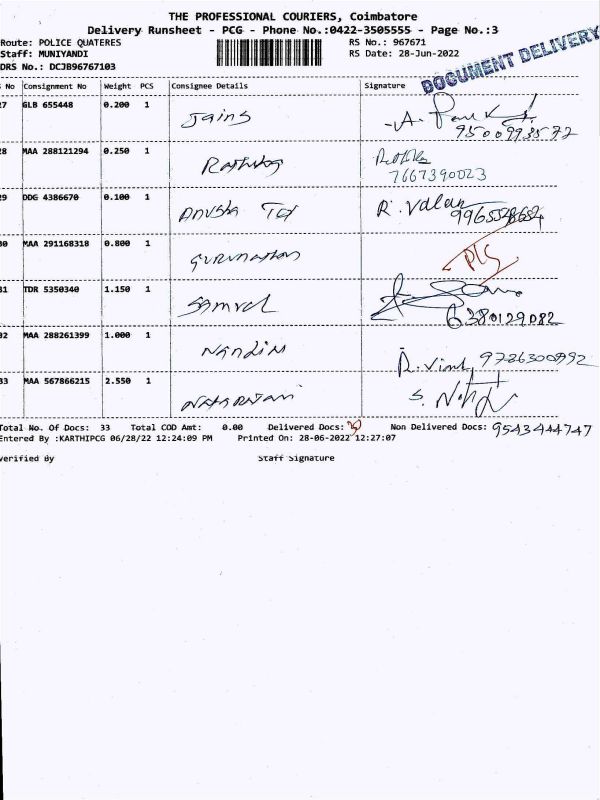 THE PROFESSIONAL COURIERS, Coimbatore
Delivery Runsheet - PCG - Phone No.:0422-3505555 - Page No.:3
Route: POLICE QUATERES RS No.: 967671
Staff: MUNIYANDI RS Date: 28-Jun-2022
DRS No.: DCJB96767103
DOCUMENT DELIVERY
No Consignment No Weight PCS Consignee Details Signature
27 GLB 655448 0.200 1 Jains
28 MAA 288121294 0.250 1
7667390023
29 DDG 4386670 0.100 1 Anusha R. Valan
30 MAA 291168318 0.800 1 Gurunathan
31 TDR 5350340 1.150 1 Samuel
6380129082
32 MAA 288261399 1.000 1 Nandini 9786300992
33 MAA 567866215 2.550 1 Natarajan
Total No. Of Docs: 33 Total COD Amt: 0.00 Delivered Docs: Non Delivered Docs: 9543444747
Entered By :KARTHIPCG 06/28/22 12:24:09 PM Printed On: 28-06-2022 12:27:07
Verified By Staff Signature